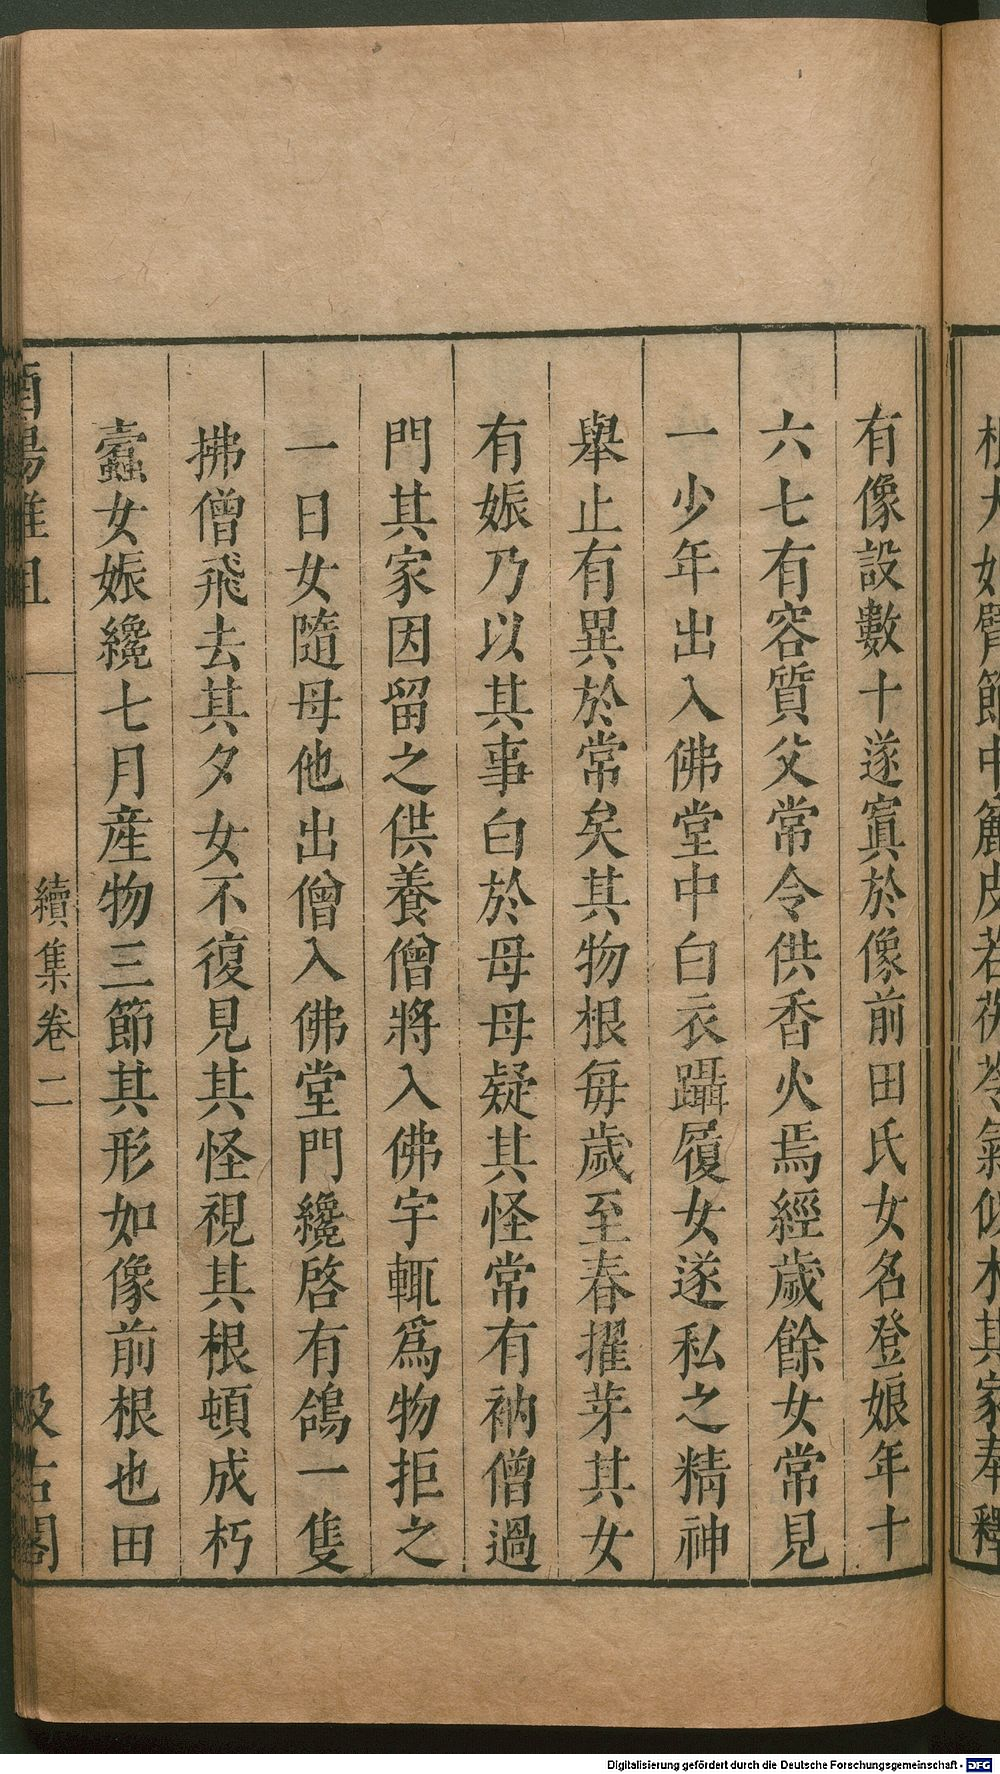 根大如臂節中麤皮若茯苓氣似朮其家奉釋
有像設數十遂寘於像前田氏女名登娘年十
六七有容質父常令供香火焉經歲餘女常見
一少年出入佛堂中白衣躡履女遂私之精神
舉止有異於常矣其物根每歲至春擢芽其女
有娠乃以其事白於母母疑其怪常有衲僧過
門其家因留之供養僧將入佛宇輒爲物拒之
一日女隨母他出僧入佛堂門纔啓有鴿一隻
拂僧飛去其夕女不復見其怪視其根頓成朽
蠹女娠纔七月産物三節其形如像前根也田
酉陽雜俎 續集卷二 汲古閣
Digitalisierung gefördert durch die Deutsche Forschungsgemeinschaft - DFG